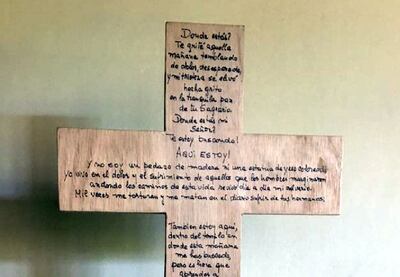 Donde estás?
Te grité aquella
mañana temblando
de dolor, desesperado,
y mi tristeza se elevó
hecha grito
en la tranquila paz
de tu Sagrario
Donde estás mi
Señor?
Te estoy buscando!
AQUI ESTOY!
Y no soy un pedazo de madera ni una estatua de yeso coloreado
yo vivo en el dolor y el sufrimiento de aquellos que los hombres marginaron
andando los caminos de esta vida revivo día a día mi calvario.
Mil veces me torturan y me matan en el diario sufrir de tus hermanos.
Tambien estoy aquí,
dentro del templo en
donde esta mañana
me has buscado,
pero es hora que
aprendas a